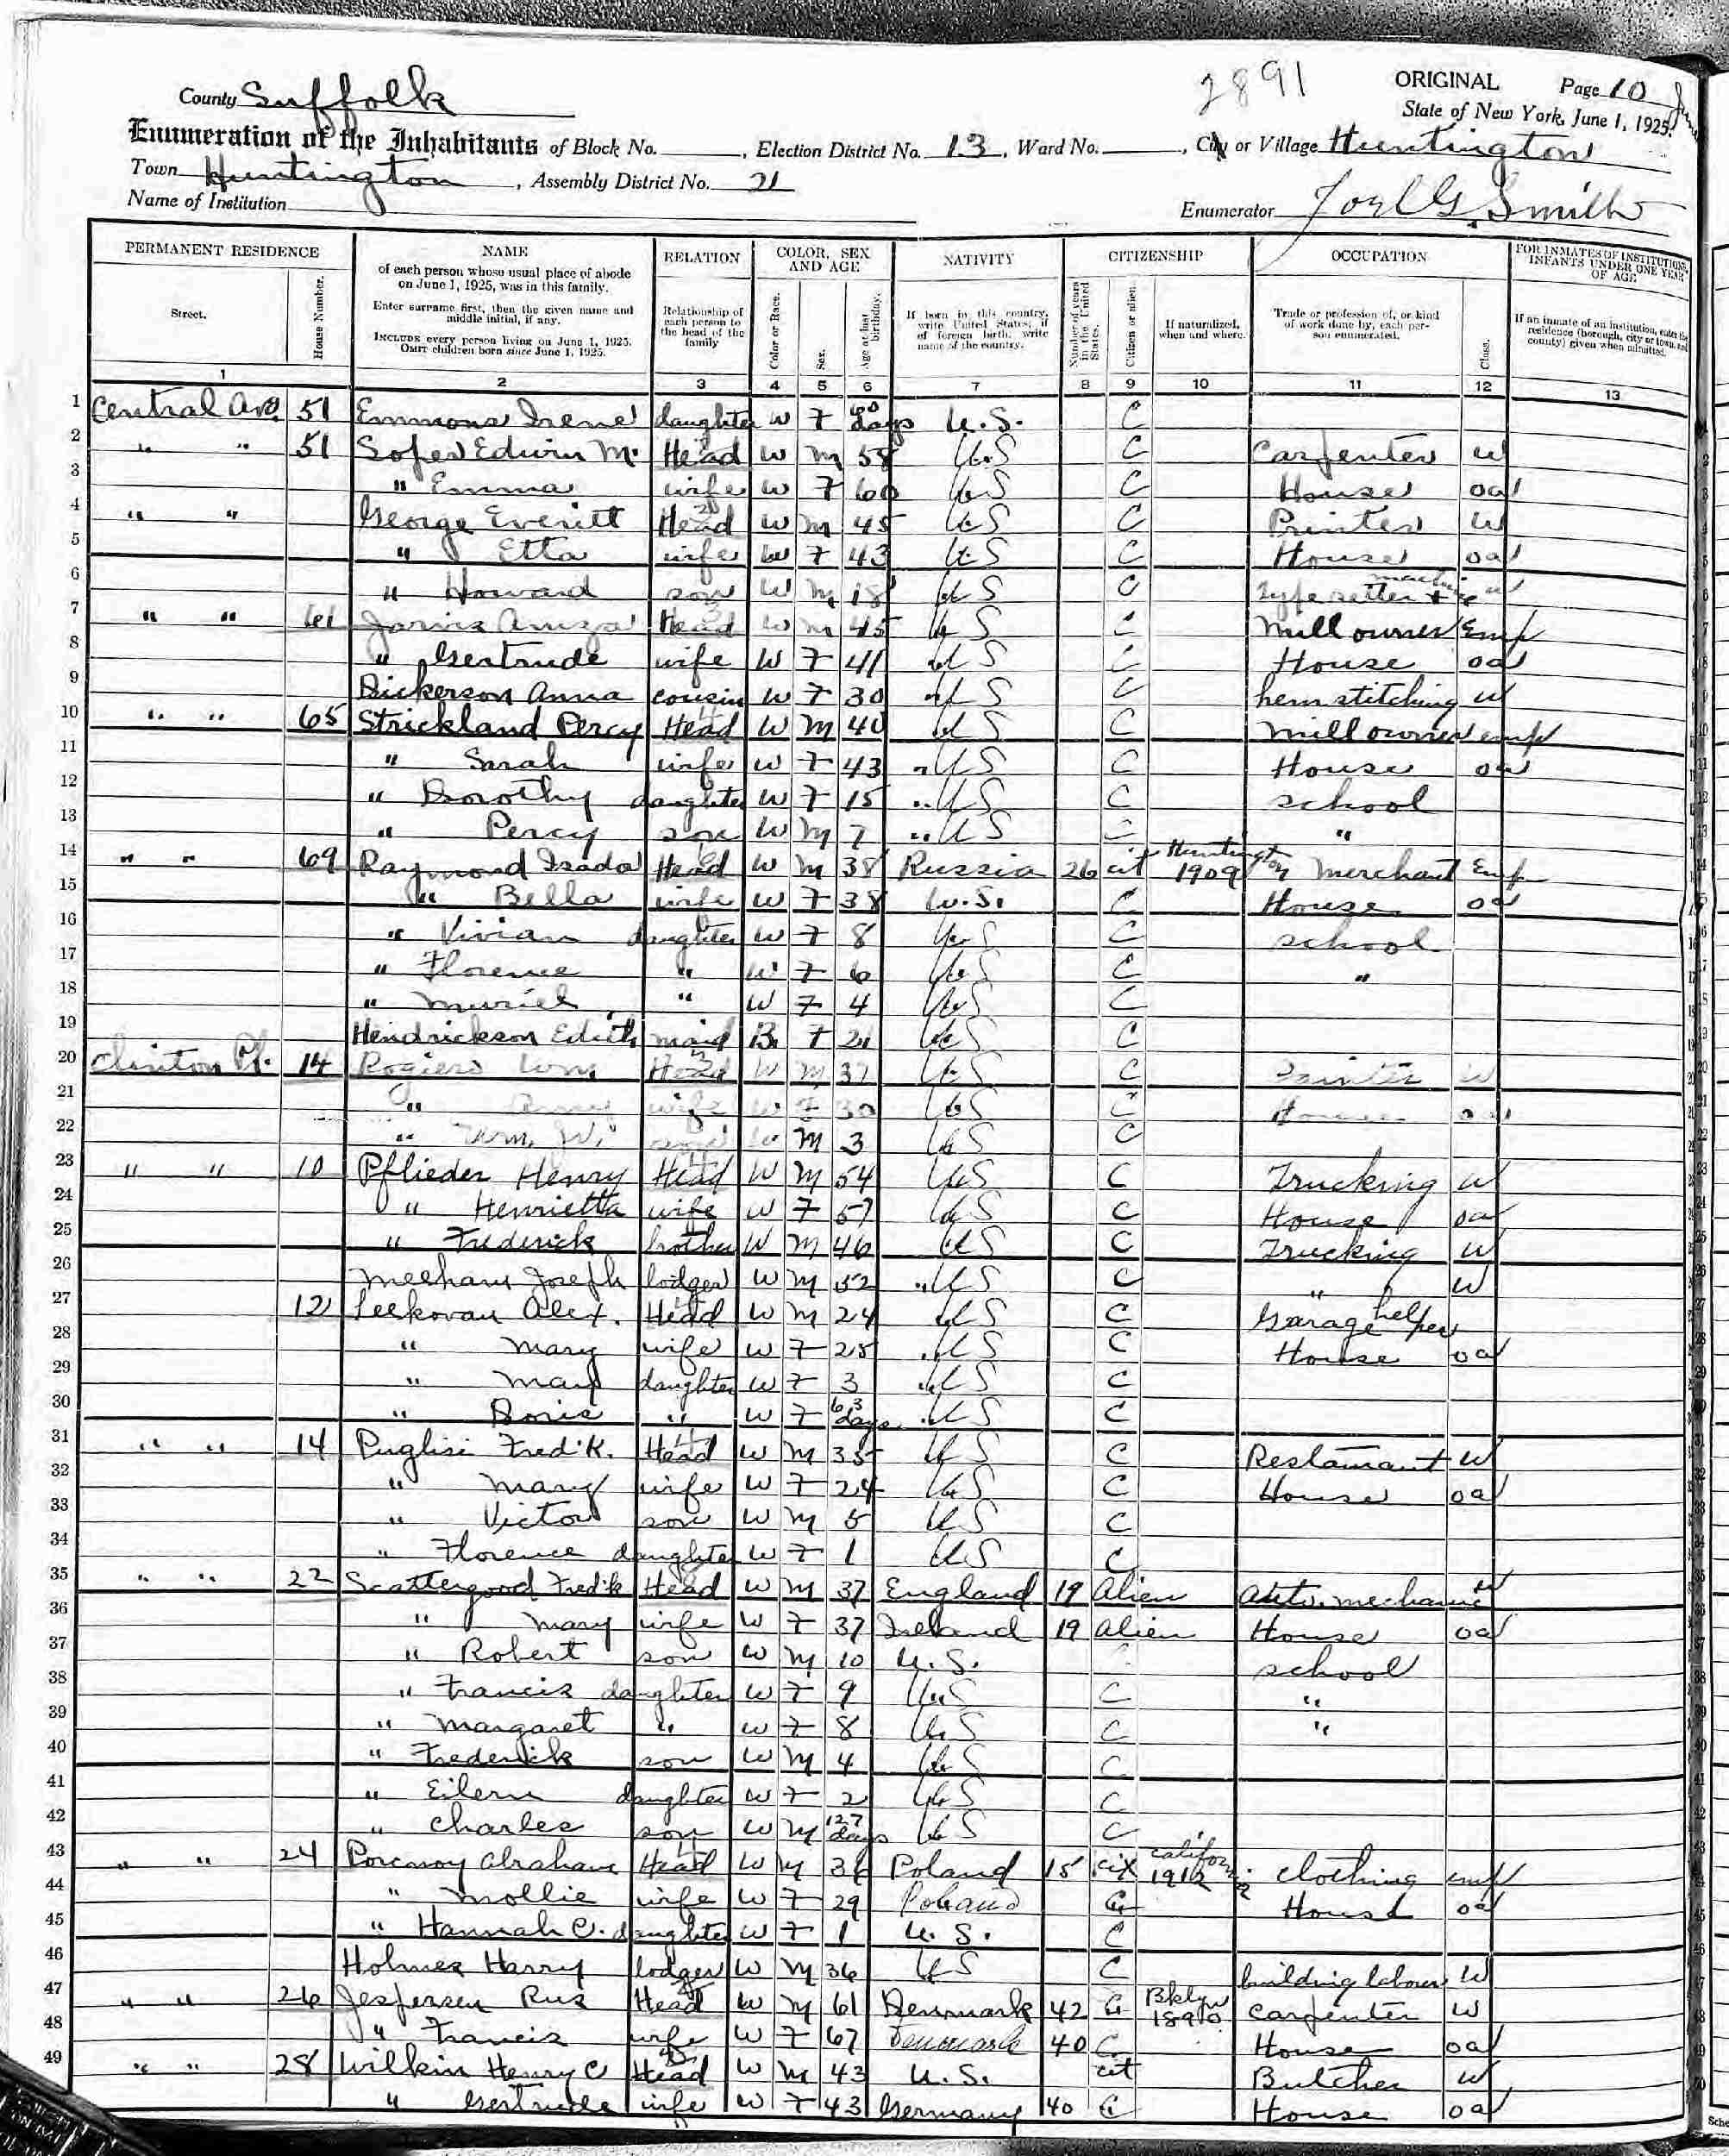 2891
ORIGINAL Page 10
County Suffolk
State of New York, June 1, 1925.
Enumeration of the Inhabitants of Block No. , Election District No. 13, Ward No. , City or Village Huntington
Town Huntington, Assembly District No. 21
Name of Institution
Enumerator Joel G. Smith
PERMANENT RESIDENCE NAME RELATION COLOR, SEX AND AGE NATIVITY CITIZENSHIP OCCUPATION FOR INMATES OF INSTITUTION, INFANTS UNDER ONE YEAR OF AGE
Street. House Number.
of each person whose usual place of abode on June 1, 1925, was in this family.
Enter surname first, then the given name and middle initial, if any.
INCLUDE every person living on June 1, 1925. OMIT children born since June 1, 1925.
Relationship of each person to the head of the family
Color or Race. Sex. Age at last birthday.
If born in this country, write United States; if of foreign birth, write name of the country.
Number of years in the United States. Citizen or alien. If naturalized, when and where.
Trade or profession of, or kind of work done by, each person enumerated. Class.
If an inmate of an institution, enter the residence (borough, city or town, and county) given when admitted.
1 2 3 4 5 6 7 8 9 10 11 12 13
1 Central Ave. 51 Emmons Irene daughter W F 60 days U.S. C
2 " " 51 Soper Edwin M. Head W M 58 U.S C Carpenter W
3 " Emma wife W F 60 U.S C House oa
4 " " George Everitt Head W M 45 U.S C Printer W
5 " Etta wife W F 43 U.S C House oa
6 " Howard son W M 18 U S C Typesetter machine W
7 " " 61 Jarvis Head W M 45 U S C Mill owner Emp
8 " Gertrude wife W F 41 U S C House oa
9 Dickerson Anna cousin W F 30 U S C hemstitching W
10 " " 65 Strickland Percy Head W M 40 U S C Mill owner emp
11 " Sarah wife W F 43 U S C House oa
12 " Dorothy daughter W F 15 U S C school
13 " Percy son W M 7 U S C "
14 " " 69 Raymond Isador Head W M 38 Russia 26 cit Huntington 1909 Merchant Emp
15 " Bella wife W F 38 U.S. C House oa
16 " Vivian daughter W F 8 U S C school
17 " Florence " W F 6 U S C "
18 " Muriel " W F 4 U S C
19 Hendrickson Edith maid B F 21 U S C
20 Clinton Pl. 14 Rogers Wm Head W M 37 U S C Painter W
21 " wife W F 30 U S C House oa
22 " Wm. W. son W M 3 U S C
23 " " 10 Pflieder Henry Head W M 54 U S C Trucking W
24 " Henrietta wife W F 57 U S C House oa
25 " Frederick brother W M 46 U S C Trucking W
26 Meehan Joseph lodger W M 52 U S C " W
27 12 Alex. Head W M 24 U S C Garage helper
28 " Mary wife W F 25 U S C House oa
29 " Mary daughter W F 3 U S C
30 " Doris " W F 63 days U S C
31 " " 14 Puglisi Fred'k. Head W M 35 U S C Restaurant W
32 " Mary wife W F 24 U S C House oa
33 " Victor son W M 5 U S C
34 " Florence daughter W F 1 U S C
35 " " 22 Scattergood Fred'k Head W M 37 England 19 Alien Auto. mechanic W
36 " Mary wife W F 37 Ireland 19 Alien House oa
37 " Robert son W M 10 U.S. school
38 " Francis daughter W F 9 U S C "
39 " Margaret " W F 8 U S C "
40 " Frederick son W M 4 U S C
41 " Eileen daughter W F 2 U S C
42 " Charles son W M 127 days U S C
43 " " 24 Abraham Head W M 36 Poland 15 cit California 1912 clothing emp
44 " Mollie wife W F 29 Poland C House oa
45 " Hannah C. daughter W F 1 U.S. C
46 Holmes Harry lodger W M 36 U S C building laborer W
47 " " 26 Jespersen Rus Head W M 61 Denmark 42 C Bklyn 1890 Carpenter W
48 " Francis wife W F 67 Denmark 40 C House oa
49 " " 28 Wilkin Henry C Head W M 43 U.S. cit Butcher W
" Gertrude wife W F 43 Germany 40 C House oa